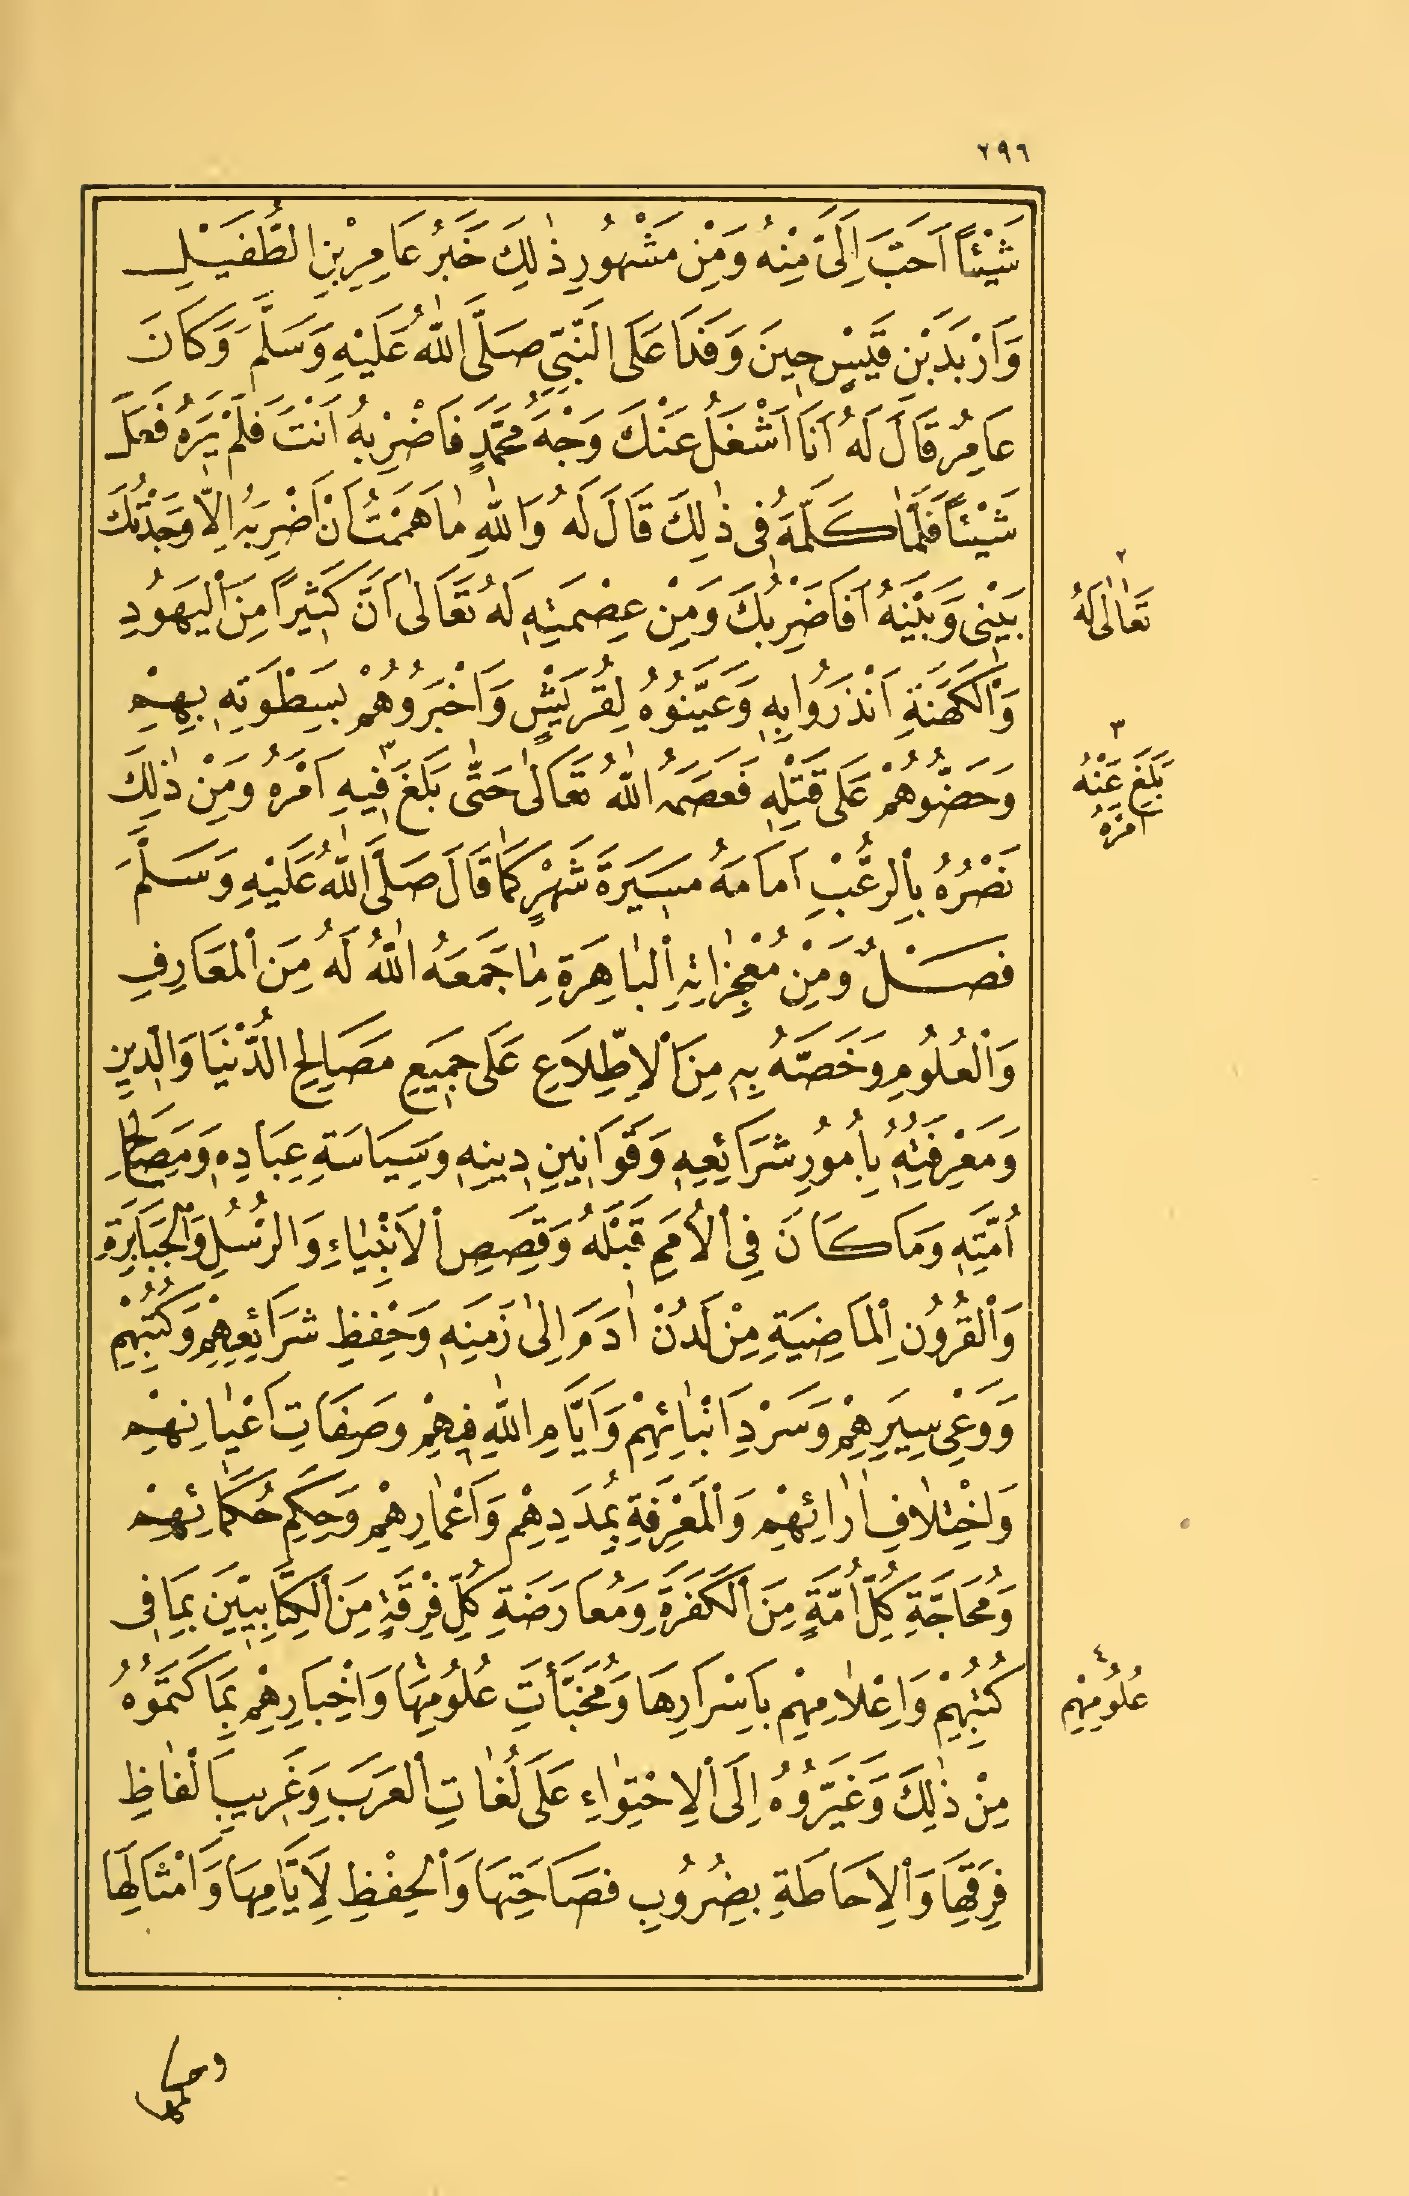 ٢٩٦
شَيْئًا اَحَبَّ اِلَىَّ مِنْهُ وَمِنْ مَشْهُورِ ذٰلِكَ خَبَرُ عَامِرِ بْنِ الطُّفَيْلِ
وَاَرْبَدَ بْنِ قَيْسٍ حِينَ وَفَدَا عَلَى النَّبِيِّ صَلَّى اللّٰهُ عَلَيْهِ وَسَلَّمَ وَكَانَ
عَامِرٌ قَالَ لَهُ اَنَا اَشْغَلُ عَنْكَ وَجْهَ مُحَمَّدٍ فَاضْرِبْهُ اَنْتَ فَلَمْ يَرَهُ فَعَلَ
شَيْئًا فَلَمَّا كَلَّمَهُ فِى ذٰلِكَ قَالَ لَهُ وَاللّٰهِ مٰا هَمَمْتُ اَنْ اَضْرِبَهُ اِلَّا وَجَدْتُكَ
بَيْنِى وَبَيْنَهُ اَفَاَضْرِبُكَ وَمِنْ عِصْمَتِهِ لَهُ تَعَالٰى اَنَّ كَثِيرًا مِنَ الْيَهُودِ
٢
تَعَالٰى لَهُ
وَالْكَهَنَةِ اَنْذَرُوا بِهِ وَعَيَّنُوهُ لِقُرَيْشٍ وَاَخْبَرُوهُمْ بِسَطْوَتِهِ بِهِمْ
وَحَضُّوهُمْ عَلَى قَتْلِهِ فَعَصَمَهُ اللّٰهُ تَعَالٰى حَتّٰى بَلَغَ ٣ فِيهِ اَمْرَهُ وَمِنْ ذٰلِكَ
٣
بَلَغَ عَنْهُ
اَمْرَهُ
نَصْرُهُ بِالرُّعْبِ اَمَامَهُ مَسِيرَةَ شَهْرٍ كَمَا قَالَ صَلَّى اللّٰهُ عَلَيْهِ وَسَلَّمَ
فَصْلٌ وَمِنْ مُعْجِزٰاتِهِ الْبٰاهِرَةِ مٰا جَمَعَهُ اللّٰهُ لَهُ مِنَ الْمَعَارِفِ
وَالْعُلُومِ وَخَصَّهُ بِهِ مِنَ الْاِطِّلَاعِ عَلَى جَمِيعِ مَصَالِحِ الدُّنْيَا وَالدِّينِ
وَمَعْرِفَتِهُ بِاُمُورِ شَرَائِعِهِ وَقَوَانِينِ دِينِهِ وَسِيَاسَةِ عِبَادِهِ وَمَصَالِحِ
اُمَّتِهِ وَمَا كَانَ فِي الْاُمَمِ قَبْلَهُ وَقَصَصِ الْاَنْبِيَاءِ وَالرُّسُلِ وَالْجَبَابِرَةِ
وَالْقُرُونِ الْمَاضِيَةِ مِنْ لَدُنْ اٰدَمَ اِلٰى زَمَنِهِ وَحِفْظِ شَرَائِعِهِمْ وَكُتُبِهِمْ
وَوَعْىِ سِيَرِهِمْ وَسَرْدِ اَنْبٰائِهِمْ وَاَيَّامِ اللّٰهِ فِيهِمْ وَصِفَاتِ اَعْيٰانِهِمْ
وَاخْتِلٰافِ اٰرٰائِهِمْ وَالْمَعْرِفَةِ بِمُدَدِهِمْ وَاَعْمٰارِهِمْ وَحِكَمِ حُكَمَائِهِمْ
وَمُحَاجَّةِ كُلِّ اُمَّةٍ مِنَ الْكَفَرَةِ وَمُعَارَضَةِ كُلِّ فِرْقَةٍ مِنَ الْكِتَابِيِّينَ بِمَا فِى
كُتُبِهِمْ وَاِعْلٰامِهِمْ بِاَسْرَارِهَا وَمُخَبَّأٰتِ عُلُومِهَا ٤ وَاِخْبَارِهِمْ بِمَا كَتَمُوهُ
٤
عُلُومِهِمْ
مِنْ ذٰلِكَ وَغَيَّرُوهُ اِلَى الْاِحْتِوٰاءِ عَلَى لُغٰاتِ الْعَرَبِ وَغَرِيبِ اَلْفٰاظِ
فِرَقِهَا وَالْاِحَاطَةِ بِضُرُوبِ فَصَاحَتِهَا وَالْحِفْظِ لِاَيَّامِهَا وَاَمْثَالِهَا
وحكمها